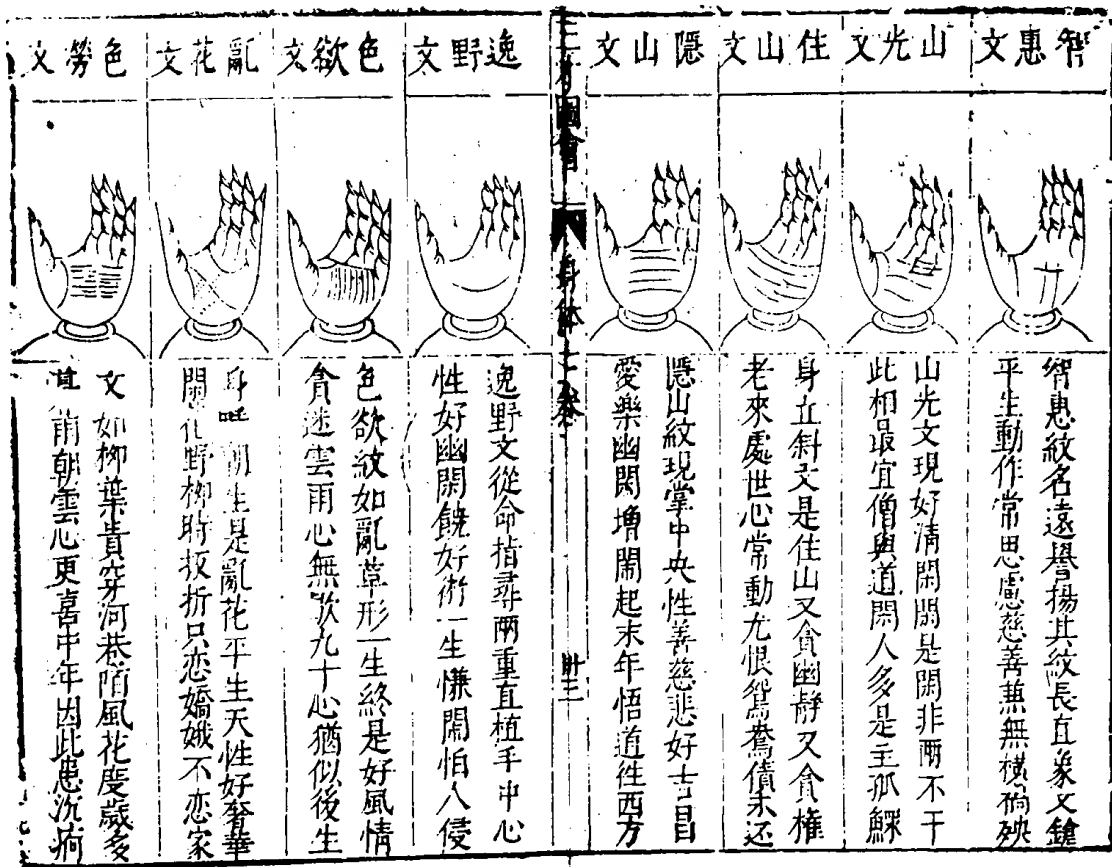 智惠文
智惠紋名遠譽揚其紋長直象文鎗
平生動作常思慮慈善兼無橫殃
山光文
山光文現好清閑閑是閑非兩不干
此相最宜僧與道閑人多是主孤鰥
住山文
身立斜文是住山又貪幽靜又貪權
老來處世心常動尤恨鴛鴦債未还
隱山文
隱山紋現掌中央性善慈悲好吉昌
愛樂幽閑增鬧起末年悟道徃西方
三才圖會
身體二卷
卅三
逸野文
逸野文從命指尋兩重直植手中心
性好幽閑饒好術一生慊鬧怕人侵
色慾文
色欲紋如亂草形一生終是好風情
貪迷雲雨心無歇九十心猶似後生
亂花文
身生是亂花平生天性好奢華
閑花野柳時扳折只恋嬌娥不恋家
色勞文
文如柳葉貴穿河巷陌風花度歲多
雨朝雲心更喜中年因此患沉痾